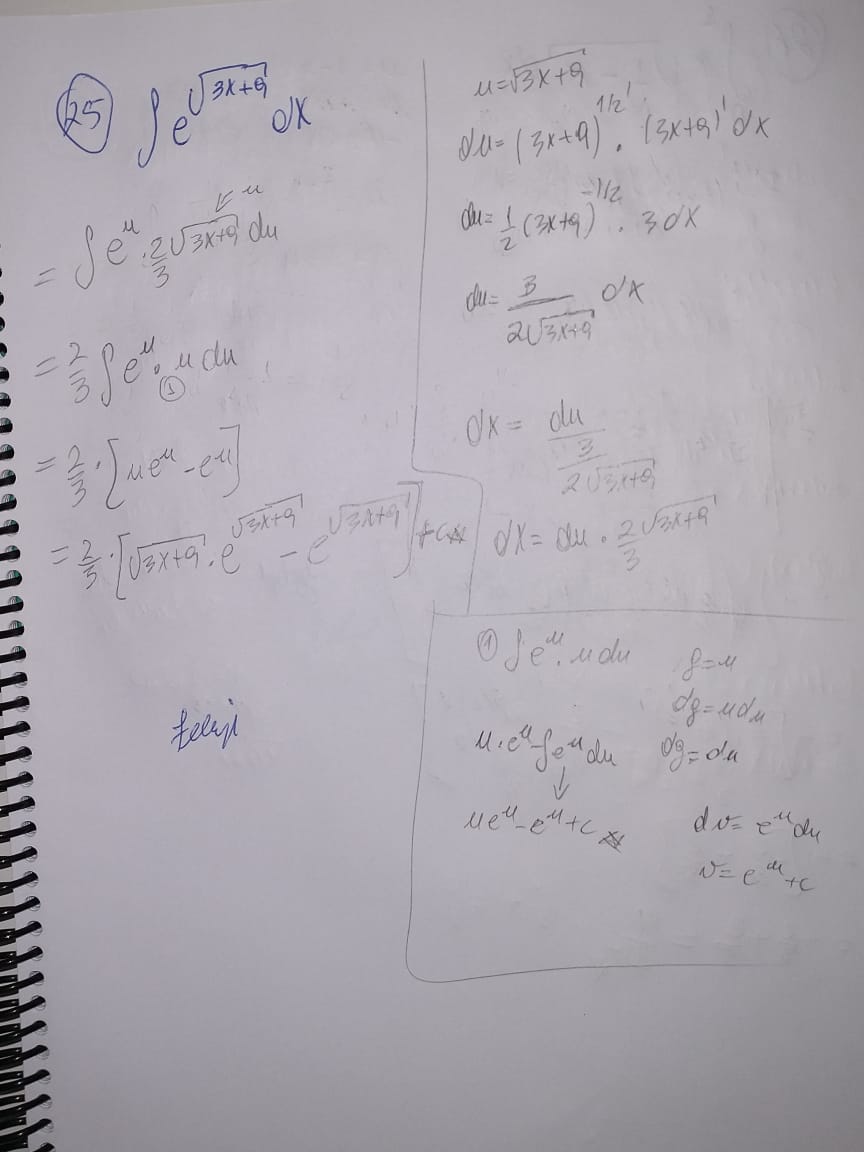 25 ∫e^√(3x+9) dx
= ∫e^u · 2/3 √(3x+9) du ⇙ u
= 2/3 ∫e^u · u du
①
= 2/3 · [ue^u - e^u]
= 2/3 · [√(3x+9) · e^√(3x+9) - e^√(3x+9)] + c
u = √(3x+9)
du = (3x+9)^1/2' · (3x+9)' dx
du = 1/2 (3x+9)^-1/2 · 3 dx
du = 3/(2√(3x+9)) dx
dx = du/(3/(2√(3x+9)))
dx = du · 2/3 √(3x+9)
① ∫e^u · u du
u · e^u - ∫e^u du
↓
ue^u - e^u + c
g = u
dg = u du
dg = du
dv = e^u du
v = e^u + c